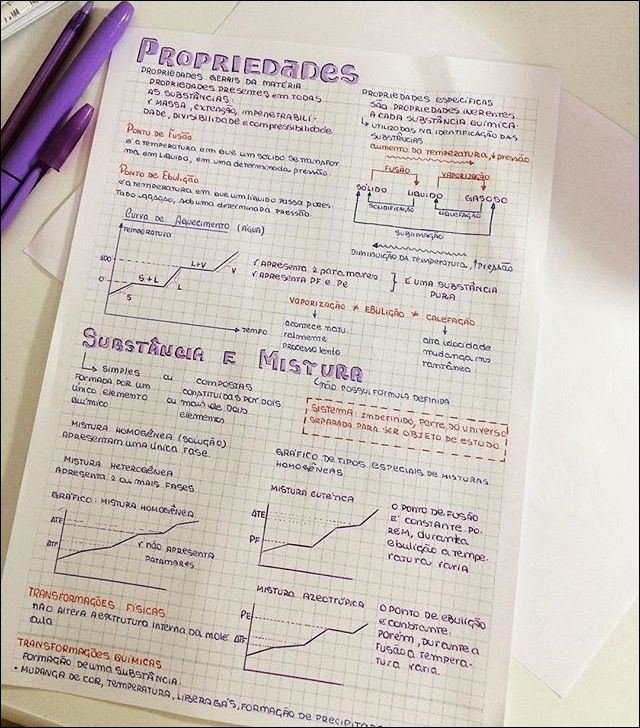 PROPRIEDADES
PROPRIEDADES GERAIS DA MATÉRIA
PROPRIEDADES PRESENTES EM TODAS
AS SUBSTÂNCIAS:
MASSA, EXTENSÃO, IMPENETRABILI-
DADE, DIVISIBILIDADE E COMPRESSIBILIDADE
PONTO DE FUSÃO
É A TEMPERATURA EM QUE UM SÓLIDO SE TRANSFOR
MA EM LÍQUIDO, EM UMA DETERMINADA PRESSÃO.
PONTO DE EBULIÇÃO
É A TEMPERATURA EM QUE UM LÍQUIDO PASSA P/O ES-
TADO GASOSO, SOB UMA DETERMINADA PRESSÃO
PROPRIEDADES ESPECÍFICAS
SÃO PROPRIEDADES INERENTES
A CADA SUBSTÂNCIA QUÍMICA.
↳ UTILIZADAS NA IDENTIFICAÇÃO DAS
SUBSTÂNCIAS
AUMENTO DA TEMPERATURA, ↓ PRESSÃO
FUSÃO VAPORIZAÇÃO
SÓLIDO LÍQUIDO GASOSO
SOLIDIFICAÇÃO LIQUEFAÇÃO
SUBLIMAÇÃO
DIMINUIÇÃO DA TEMPERATURA, ↑ PRESSÃO
CURVA DE AQUECIMENTO (ÁGUA)
TEMPERATURA
100°
0°
S
S+L
L
L+V
V
TEMPO
APRESENTA 2 PATAMARES
APRESENTA PF E PE
É UMA SUBSTÂNCIA
PURA
VAPORIZAÇÃO ≠ EBULIÇÃO ≠ CALEFAÇÃO
ACONTECE NATU-
RALMENTE
PROCESSO LENTO
ALTA VELOCIDADE
MUDANÇA INS
TANTÂNEA
SUBSTÂNCIA E MISTURA
↳ SIMPLES OU COMPOSTAS
FORMADA POR UM CONSTITUÍDAS POR DOIS
ÚNICO ELEMENTO OU MAIS DE DOIS
QUÍMICO ELEMENTOS
NÃO POSSUI FÓRMULA DEFINIDA
SISTEMA: INDEFINIDO, PARTE DO UNIVERSO
SEPARADA PARA SER OBJETO DE ESTUDO
MISTURA HOMOGÊNEA (SOLUÇÃO)
APRESENTAM UMA ÚNICA FASE
MISTURA HETEROGÊNEA
APRESENTA 2 OU MAIS FASES
GRÁFICO: MISTURA HOMOGÊNEA
ΔTE
ΔTF
NÃO APRESENTA
PATAMARES
GRÁFICO DE TIPOS ESPECIAIS DE MISTURAS
HOMOGÊNEAS.
MISTURA EUTÉTICA
ΔTE
PF
O PONTO DE FUSÃO
É CONSTANTE. PO-
RÉM, DURANTE A
EBULIÇÃO A TEMPE-
RATURA VARIA
MISTURA AZEOTRÓPICA
PE
ΔTF
O PONTO DE EBULIÇÃO
É CONSTANTE.
PORÉM, DURANTE A
FUSÃO A TEMPERA-
TURA VARIA.
TRANSFORMAÇÕES FÍSICAS
NÃO ALTERA A ESTRUTURA INTERNA DA MOLÉ
CULA
TRANSFORMAÇÕES QUÍMICAS
FORMAÇÃO DE UMA SUBSTÂNCIA.
• MUDANÇA DE COR, TEMPERATURA, LIBERA GÁS, FORMAÇÃO DE